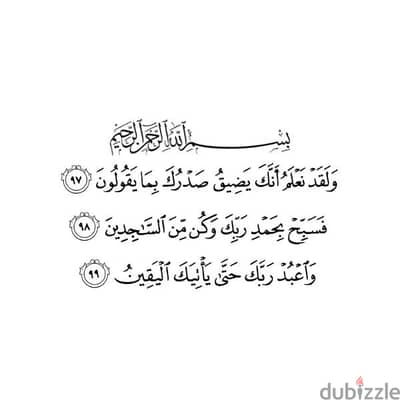 بِسْمِ ٱللَّهِ ٱلرَّحْمَٰنِ ٱلرَّحِيمِ
وَلَقَدْ نَعْلَمُ أَنَّكَ يَضِيقُ صَدْرُكَ بِمَا يَقُولُونَ ٩٧
فَسَبِّحْ بِحَمْدِ رَبِّكَ وَكُن مِّنَ ٱلسَّٰجِدِينَ ٩٨
وَٱعْبُدْ رَبَّكَ حَتَّىٰ يَأْتِيَكَ ٱلْيَقِينُ ٩٩
dubizzle